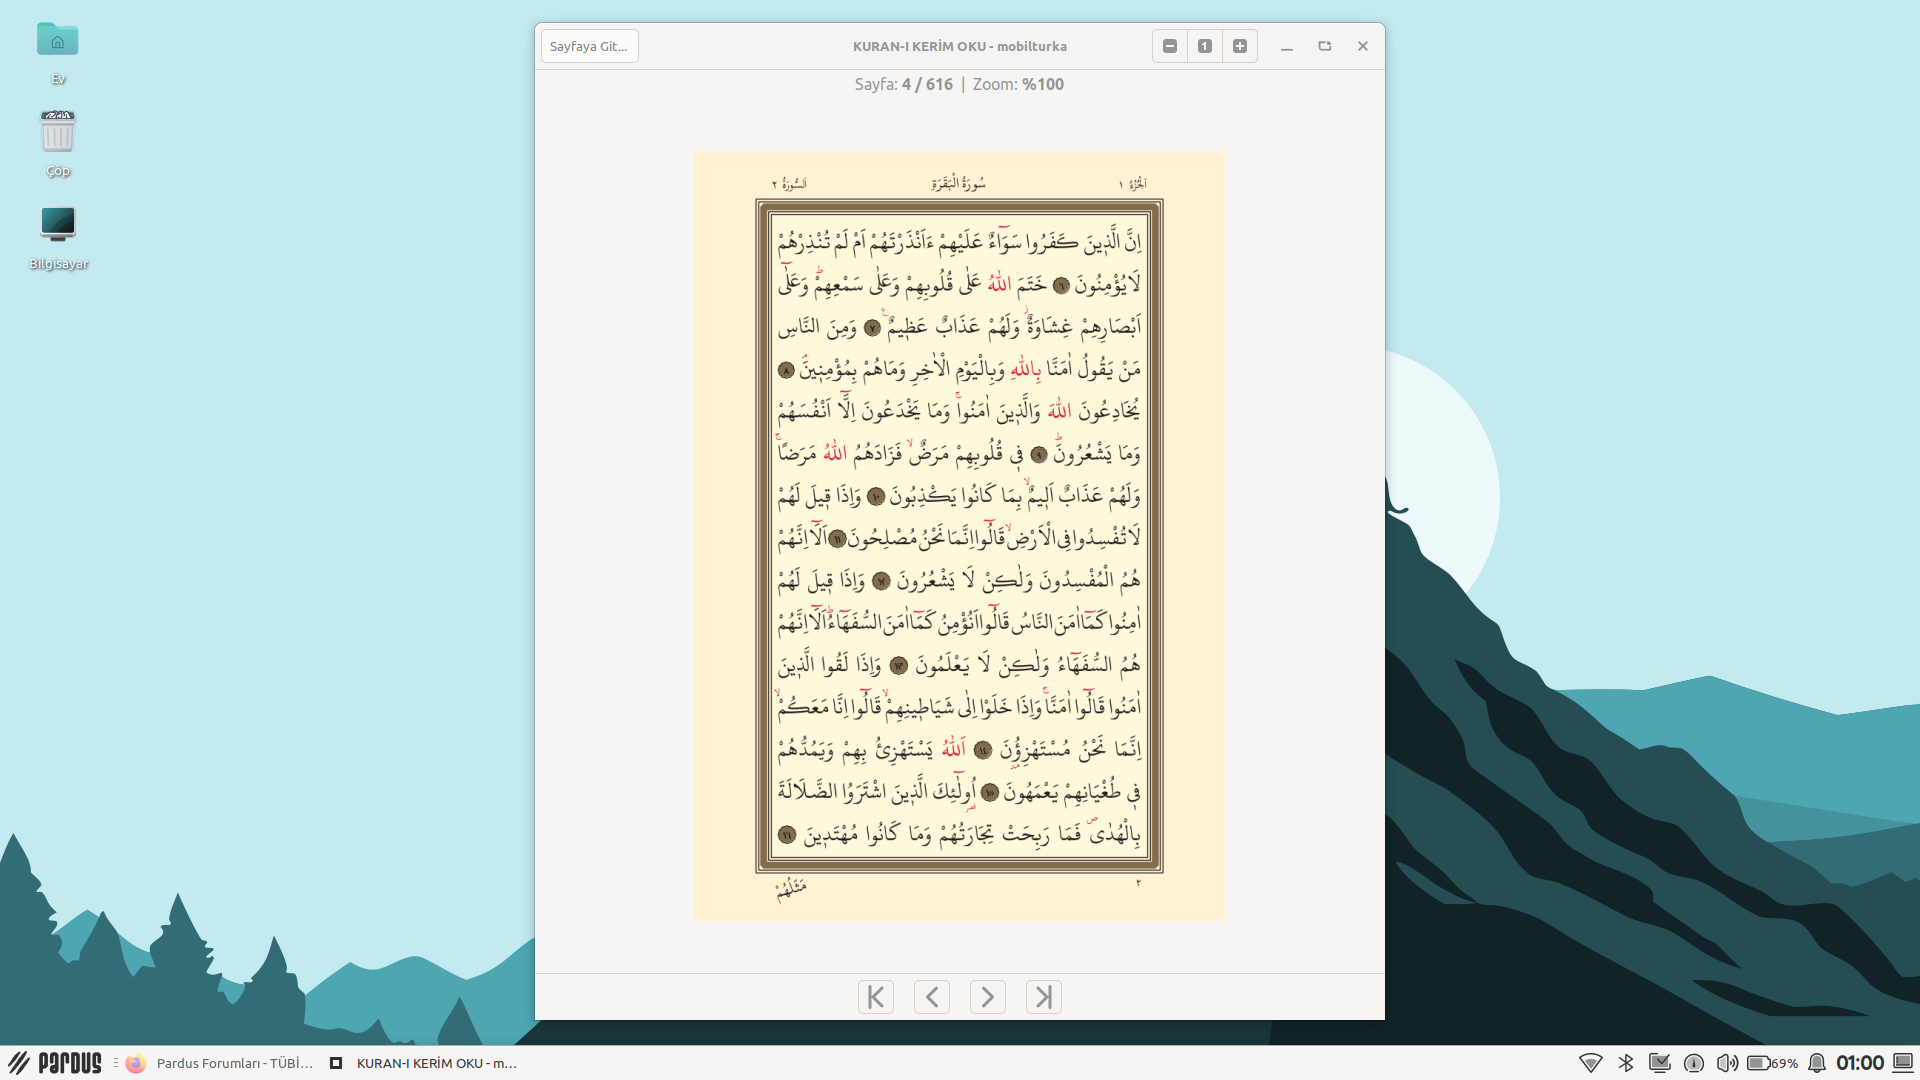 Ev
Çöp
Bilgisayar
Sayfaya Git...
KURAN-I KERİM OKU - mobilturka
1
Sayfa: 4 / 616 | Zoom: %100
اَلْجُزْءُ ١
سُورَةُ الْبَقَرَةِ
اَلسُّورَةُ ٢
اِنَّ الَّذ۪ينَ كَفَرُوا سَوَٓاءٌ عَلَيْهِمْ ءَاَنْذَرْتَهُمْ اَمْ لَمْ تُنْذِرْهُمْ
لَا يُؤْمِنُونَ ٦ خَتَمَ اللّٰهُ عَلٰى قُلُوبِهِمْ وَعَلٰى سَمْعِهِمْۜ وَعَلٰٓى
اَبْصَارِهِمْ غِشَاوَةٌۘ وَلَهُمْ عَذَابٌ عَظ۪يمٌ۟ ٧ وَمِنَ النَّاسِ
مَنْ يَقُولُ اٰمَنَّا بِاللّٰهِ وَبِالْيَوْمِ الْاٰخِرِ وَمَا هُمْ بِمُؤْمِن۪ينَۢ ٨
يُخَادِعُونَ اللّٰهَ وَالَّذ۪ينَ اٰمَنُواۚ وَمَا يَخْدَعُونَ اِلَّٓا اَنْفُسَهُمْ
وَمَا يَشْعُرُونَۜ ٩ ف۪ي قُلُوبِهِمْ مَرَضٌۙ فَزَادَهُمُ اللّٰهُ مَرَضًاۚ
وَلَهُمْ عَذَابٌ اَل۪يمٌۙ بِمَا كَانُوا يَكْذِبُونَ ١٠ وَاِذَا ق۪يلَ لَهُمْ
لَا تُفْسِدُوا فِي الْاَرْضِۙ قَالُٓوا اِنَّمَا نَحْنُ مُصْلِحُونَ ١١ اَلَٓا اِنَّهُمْ
هُمُ الْمُفْسِدُونَ وَلٰكِنْ لَا يَشْعُرُونَ ١٢ وَاِذَا ق۪يلَ لَهُمْ
اٰمِنُوا كَمَٓا اٰمَنَ النَّاسُ قَالُٓوا اَنُؤْمِنُ كَمَٓا اٰمَنَ السُّفَهَٓاءُۜ اَلَٓا اِنَّهُمْ
هُمُ السُّفَهَٓاءُ وَلٰكِنْ لَا يَعْلَمُونَ ١٣ وَاِذَا لَقُوا الَّذ۪ينَ
اٰمَنُوا قَالُٓوا اٰمَنَّاۚ وَاِذَا خَلَوْا اِلٰى شَيَاط۪ينِهِمْۙ قَالُٓوا اِنَّا مَعَكُمْۙ
اِنَّمَا نَحْنُ مُسْتَهْزِؤُ۫نَ ١٤ اَللّٰهُ يَسْتَهْزِئُ بِهِمْ وَيَمُدُّهُمْ
ف۪ي طُغْيَانِهِمْ يَعْمَهُونَ ١٥ اُو۬لٰٓئِكَ الَّذ۪ينَ اشْتَرَوُا الضَّلَالَةَ
بِالْهُدٰىۖ فَمَا رَبِحَتْ تِجَارَتُهُمْ وَمَا كَانُوا مُهْتَد۪ينَ ١٦
٢
مَثَلُهُمْ
PARDUS
Pardus Forumları - TÜBİ...
KURAN-I KERİM OKU - m...
69%
01:00